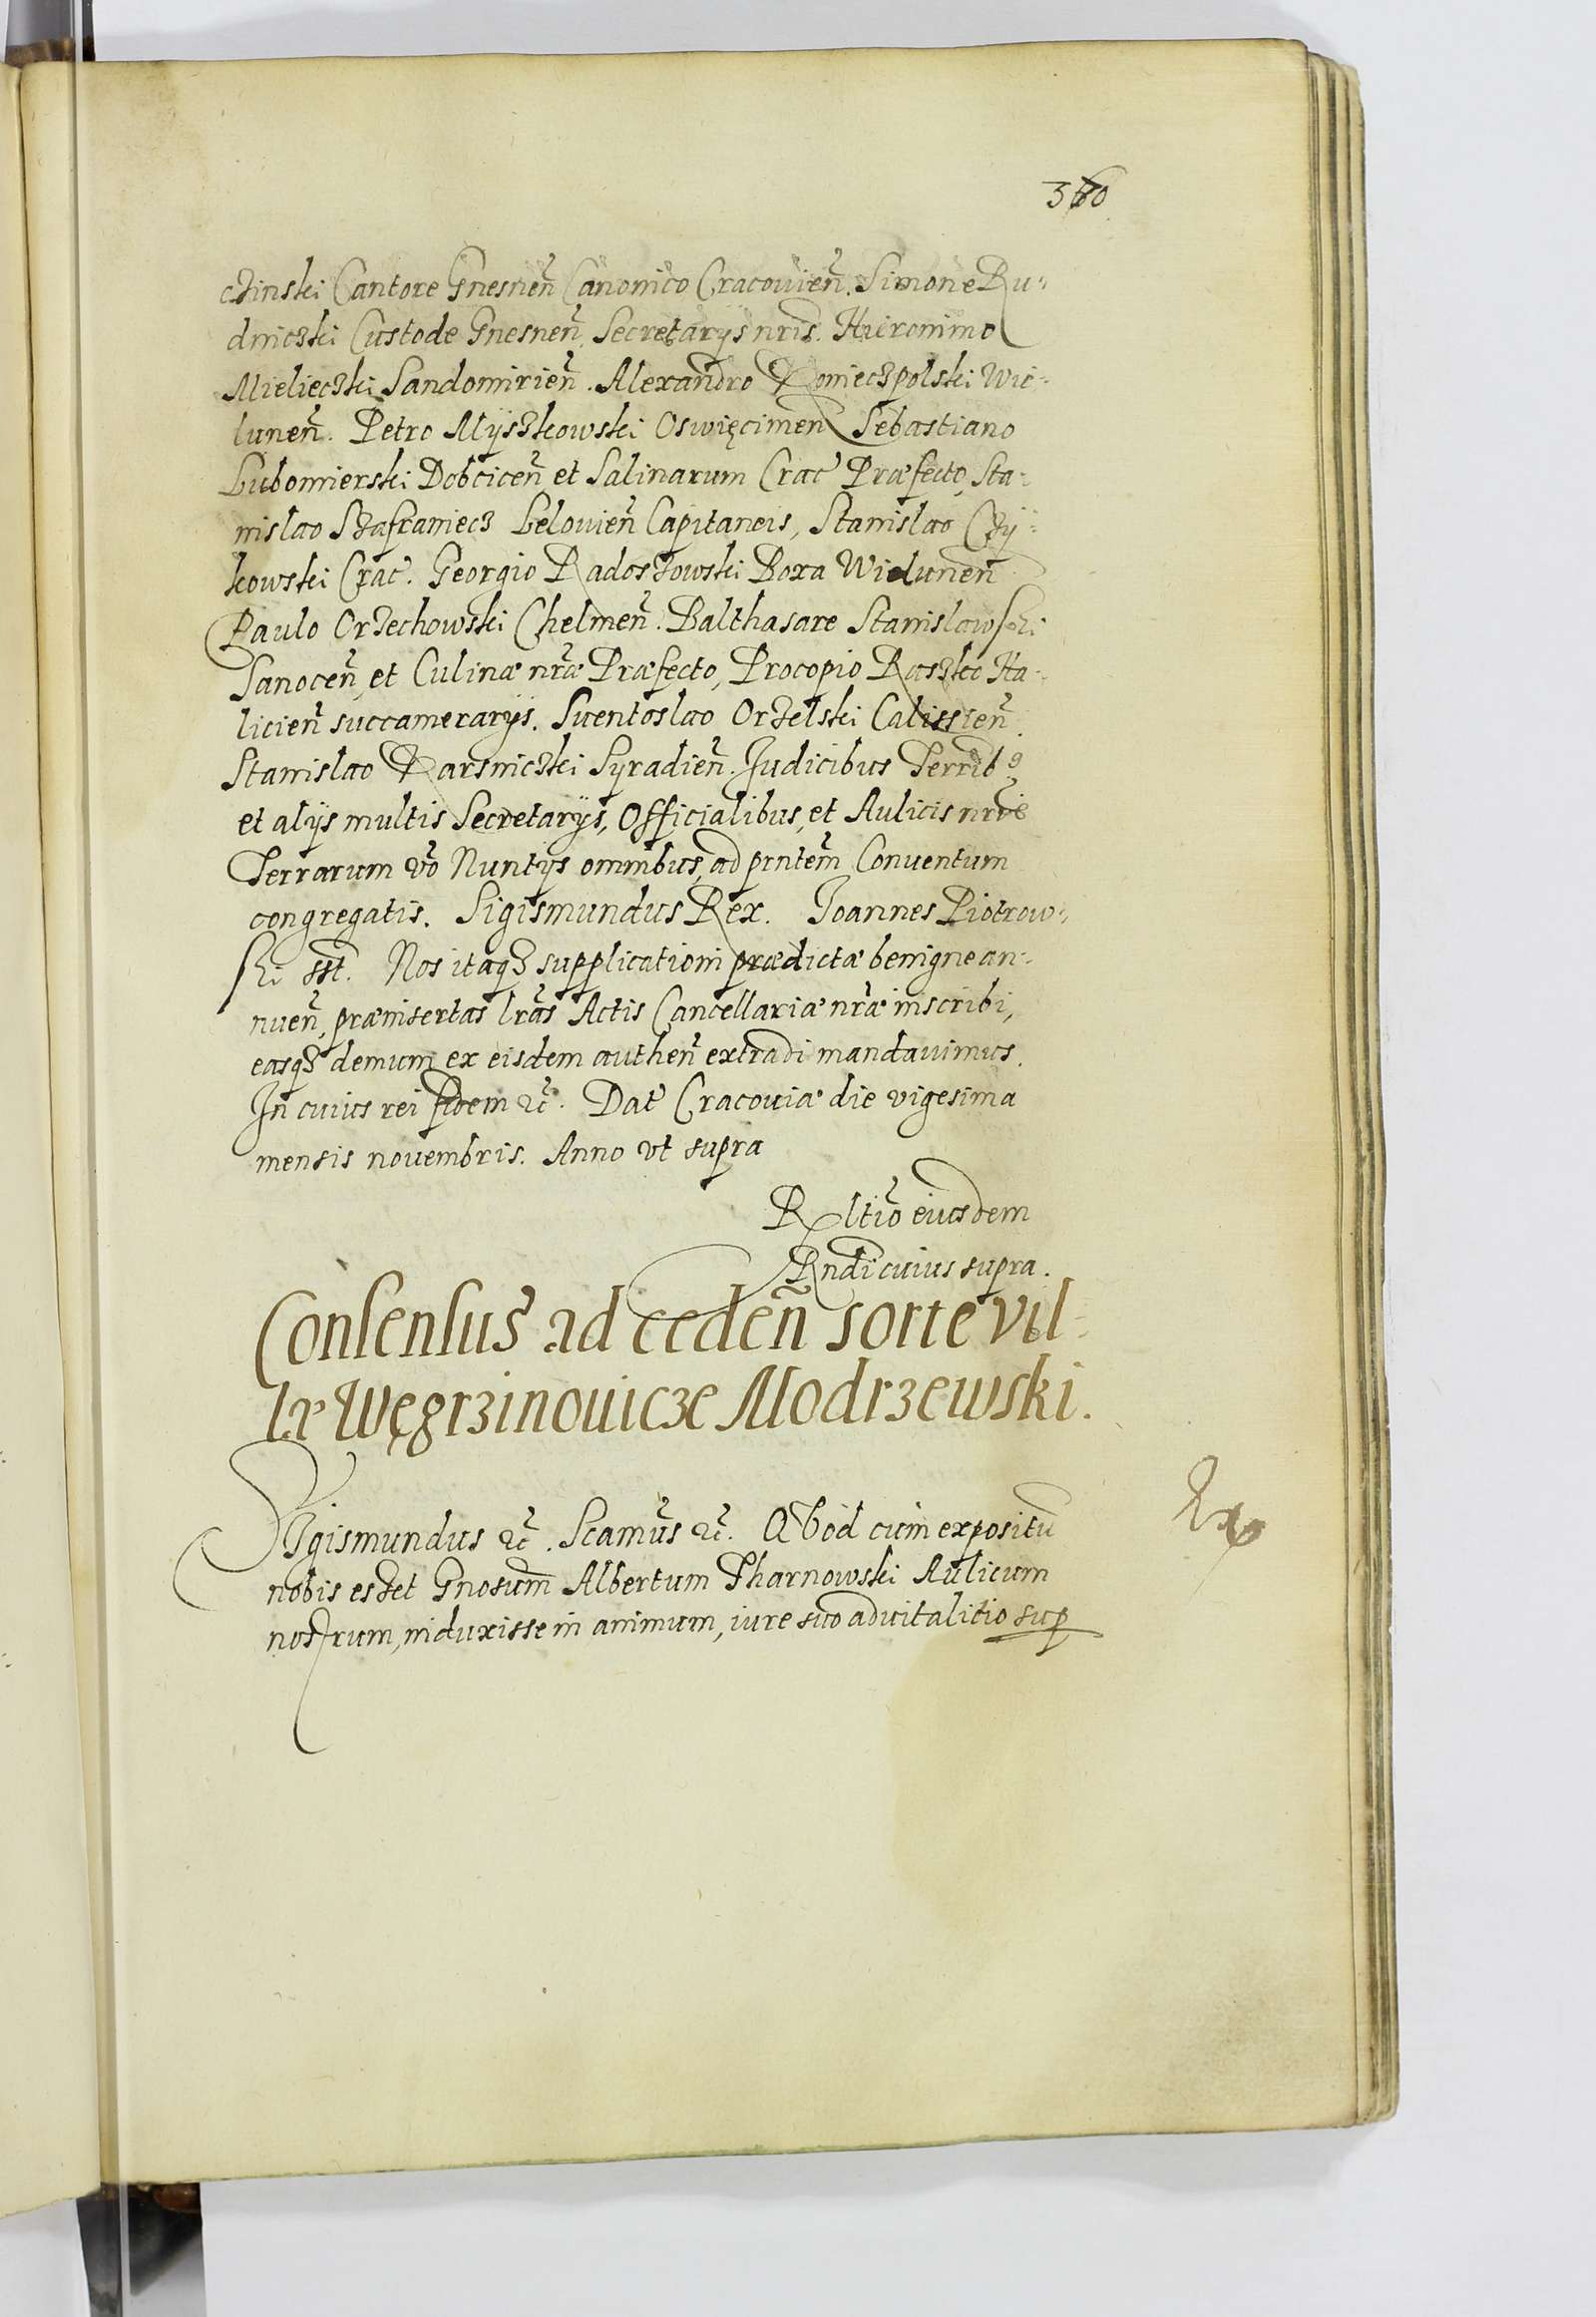 360
cżinski Cantore Gnesnen̄ Canonico Cracouien̄. Simone Ru-
dniczki Custode Gnesnen̄. Secretarys nris̄. Hieronimo
Mieliecżki Sandomirien̄. Alexandro Koniecżpolski Wie-
lunen̄. Petro Mÿszkowski Oswięcimen̄ Sebastiano
Lubomierski Dobcicen̄ et Salinarum Crac̄ Præfecto, Sta-
nislao Szafraniecz Lelouien̄ Capitaneis, Stanislao Czÿ-
kowski Crac̄. Georgio Radoszowski Boxa Wielunen̄
Paulo Orzechowski Chelmen̄. Balthasare Stanislawski
Sanocen̄, et Culinæ nrǣ Præfecto, Procopio Raszko Ha-
licien̄ succamerarÿs. Suentoslao Orzelski Calissien̄.
Stanislao Karsniczki Syradien̄. Judicibus Terrib9
et alÿs multis Secretarÿs, Officialibus, et Aulicis nris̄
Terrarum vō Nuntÿs omnibus, ad prntem̄ Conuentum
congregatis. Sigismundus Rex. Joannes Piotrow-
ski sst̄. Nos itaqꝫ supplicationi prædictæ benigne an-
nuen̄, præinsertas lrās Actis Cancellariæ nrǣ inscribi,
easqꝫ demum ex eisdem authen̄ extradi mandauimus.
In cuius rei fidem ꝛc̄. Dat̄ Cracouiæ die vigesima
mensis nouembris. Anno vt supra
Rltiō eiusdem
Rndī cuius supra.
Consensus ad ceden̄ sorte vil-
læ Węgrzinouicze Modrzewski.
Sigismundus ꝛc̄. Scamus̄ ꝛc̄. QVod cum expositū
nobis esset Gnosum̄ Albertum Tharnowski Aulicum
nostrum, induxisse in animum, iure suo aduitalitio sup